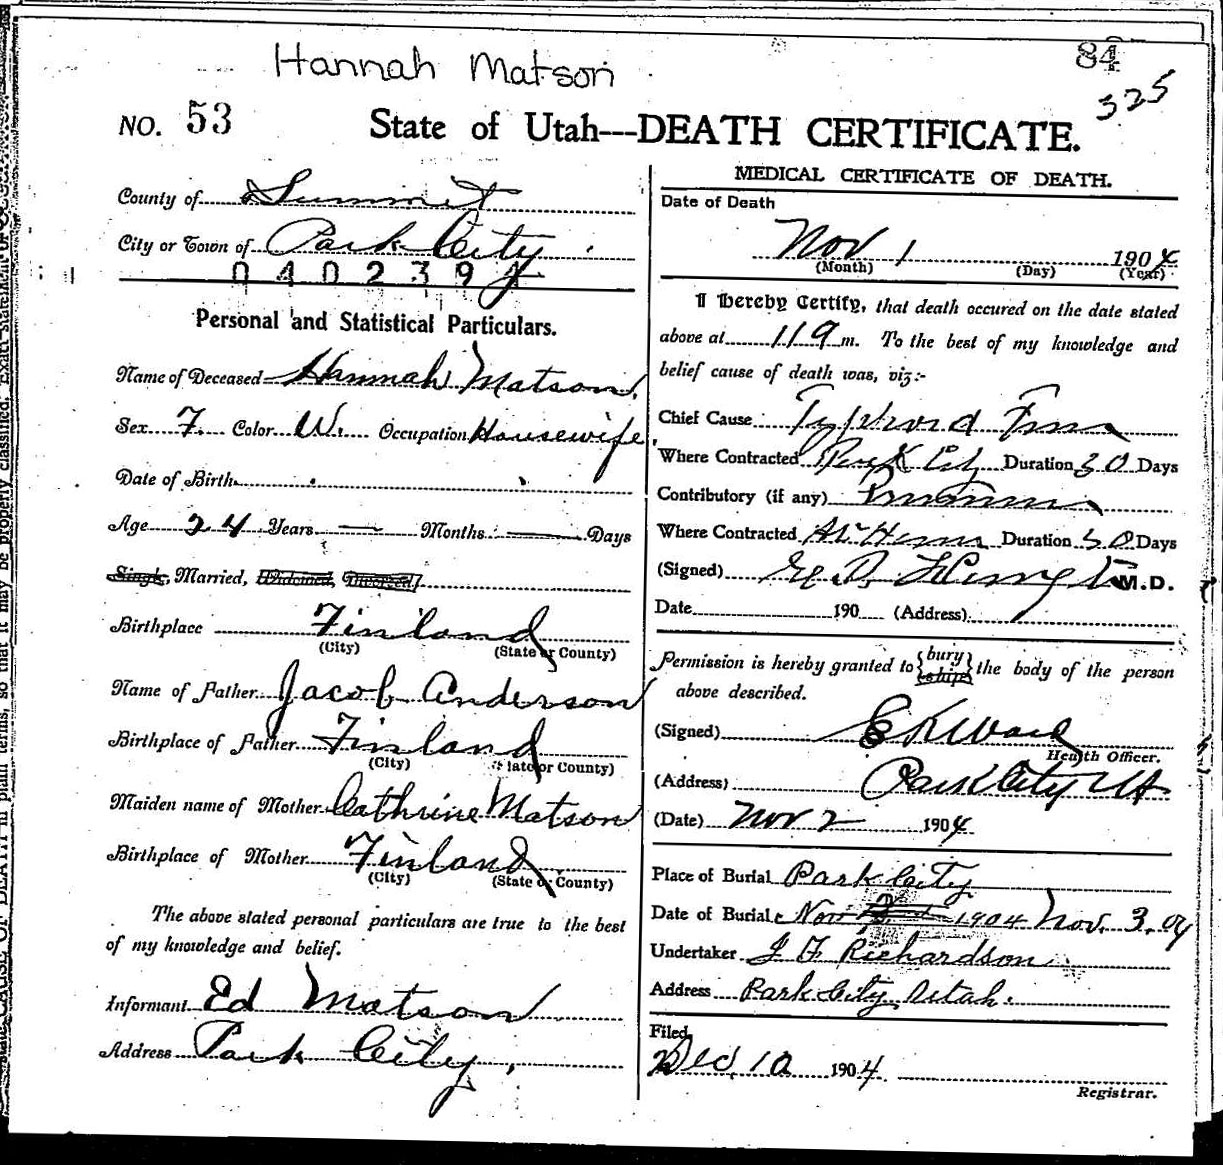 Hannah Matson
84
325
NO. 53 State of Utah---DEATH CERTIFICATE.
County of Summit
City or Town of Park City
040239
Personal and Statistical Particulars.
Name of Deceased Hannah Matson.
Sex F. Color W. Occupation Housewife
Date of Birth
Age 24 Years — Months — Days
Single, Married, Widowed, Divorced,
Birthplace Finland
(City) (State or County)
Name of Father Jacob Anderson
Birthplace of Father Finland
(City) (State or County)
Maiden name of Mother Cathrine Matson
Birthplace of Mother Finland
(City) (State or County)
The above stated personal particulars are true to the best
of my knowledge and belief.
Informant Ed Matson
Address Park City,
MEDICAL CERTIFICATE OF DEATH.
Date of Death
Nov 1 1904
(Month) (Day) (Year)
I hereby Certify, that death occured on the date stated
above at 119 m. To the best of my knowledge and
belief cause of death was, viz:-
Chief Cause Typhoid
Where Contracted Park City Duration 30 Days
Contributory (if any)
Where Contracted At Home Duration Days
(Signed) M.D.
Date 190 (Address)
Permission is hereby granted to {bury
{ship} the body of the person
above described.
(Signed) E K Ward
Health Officer.
(Address) Park City Ut
(Date) Nov 2 1904
Place of Burial Park City
Date of Burial Nov 1904 Nov. 3. 04
Undertaker J F Richardson
Address Park City, Utah.
Filed
Dec. 10 1904
Registrar.